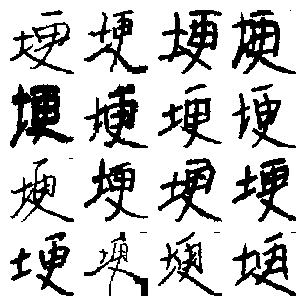 埂埂埂埂
埂埂埂埂
埂埂埂埂
埂埂埂埂